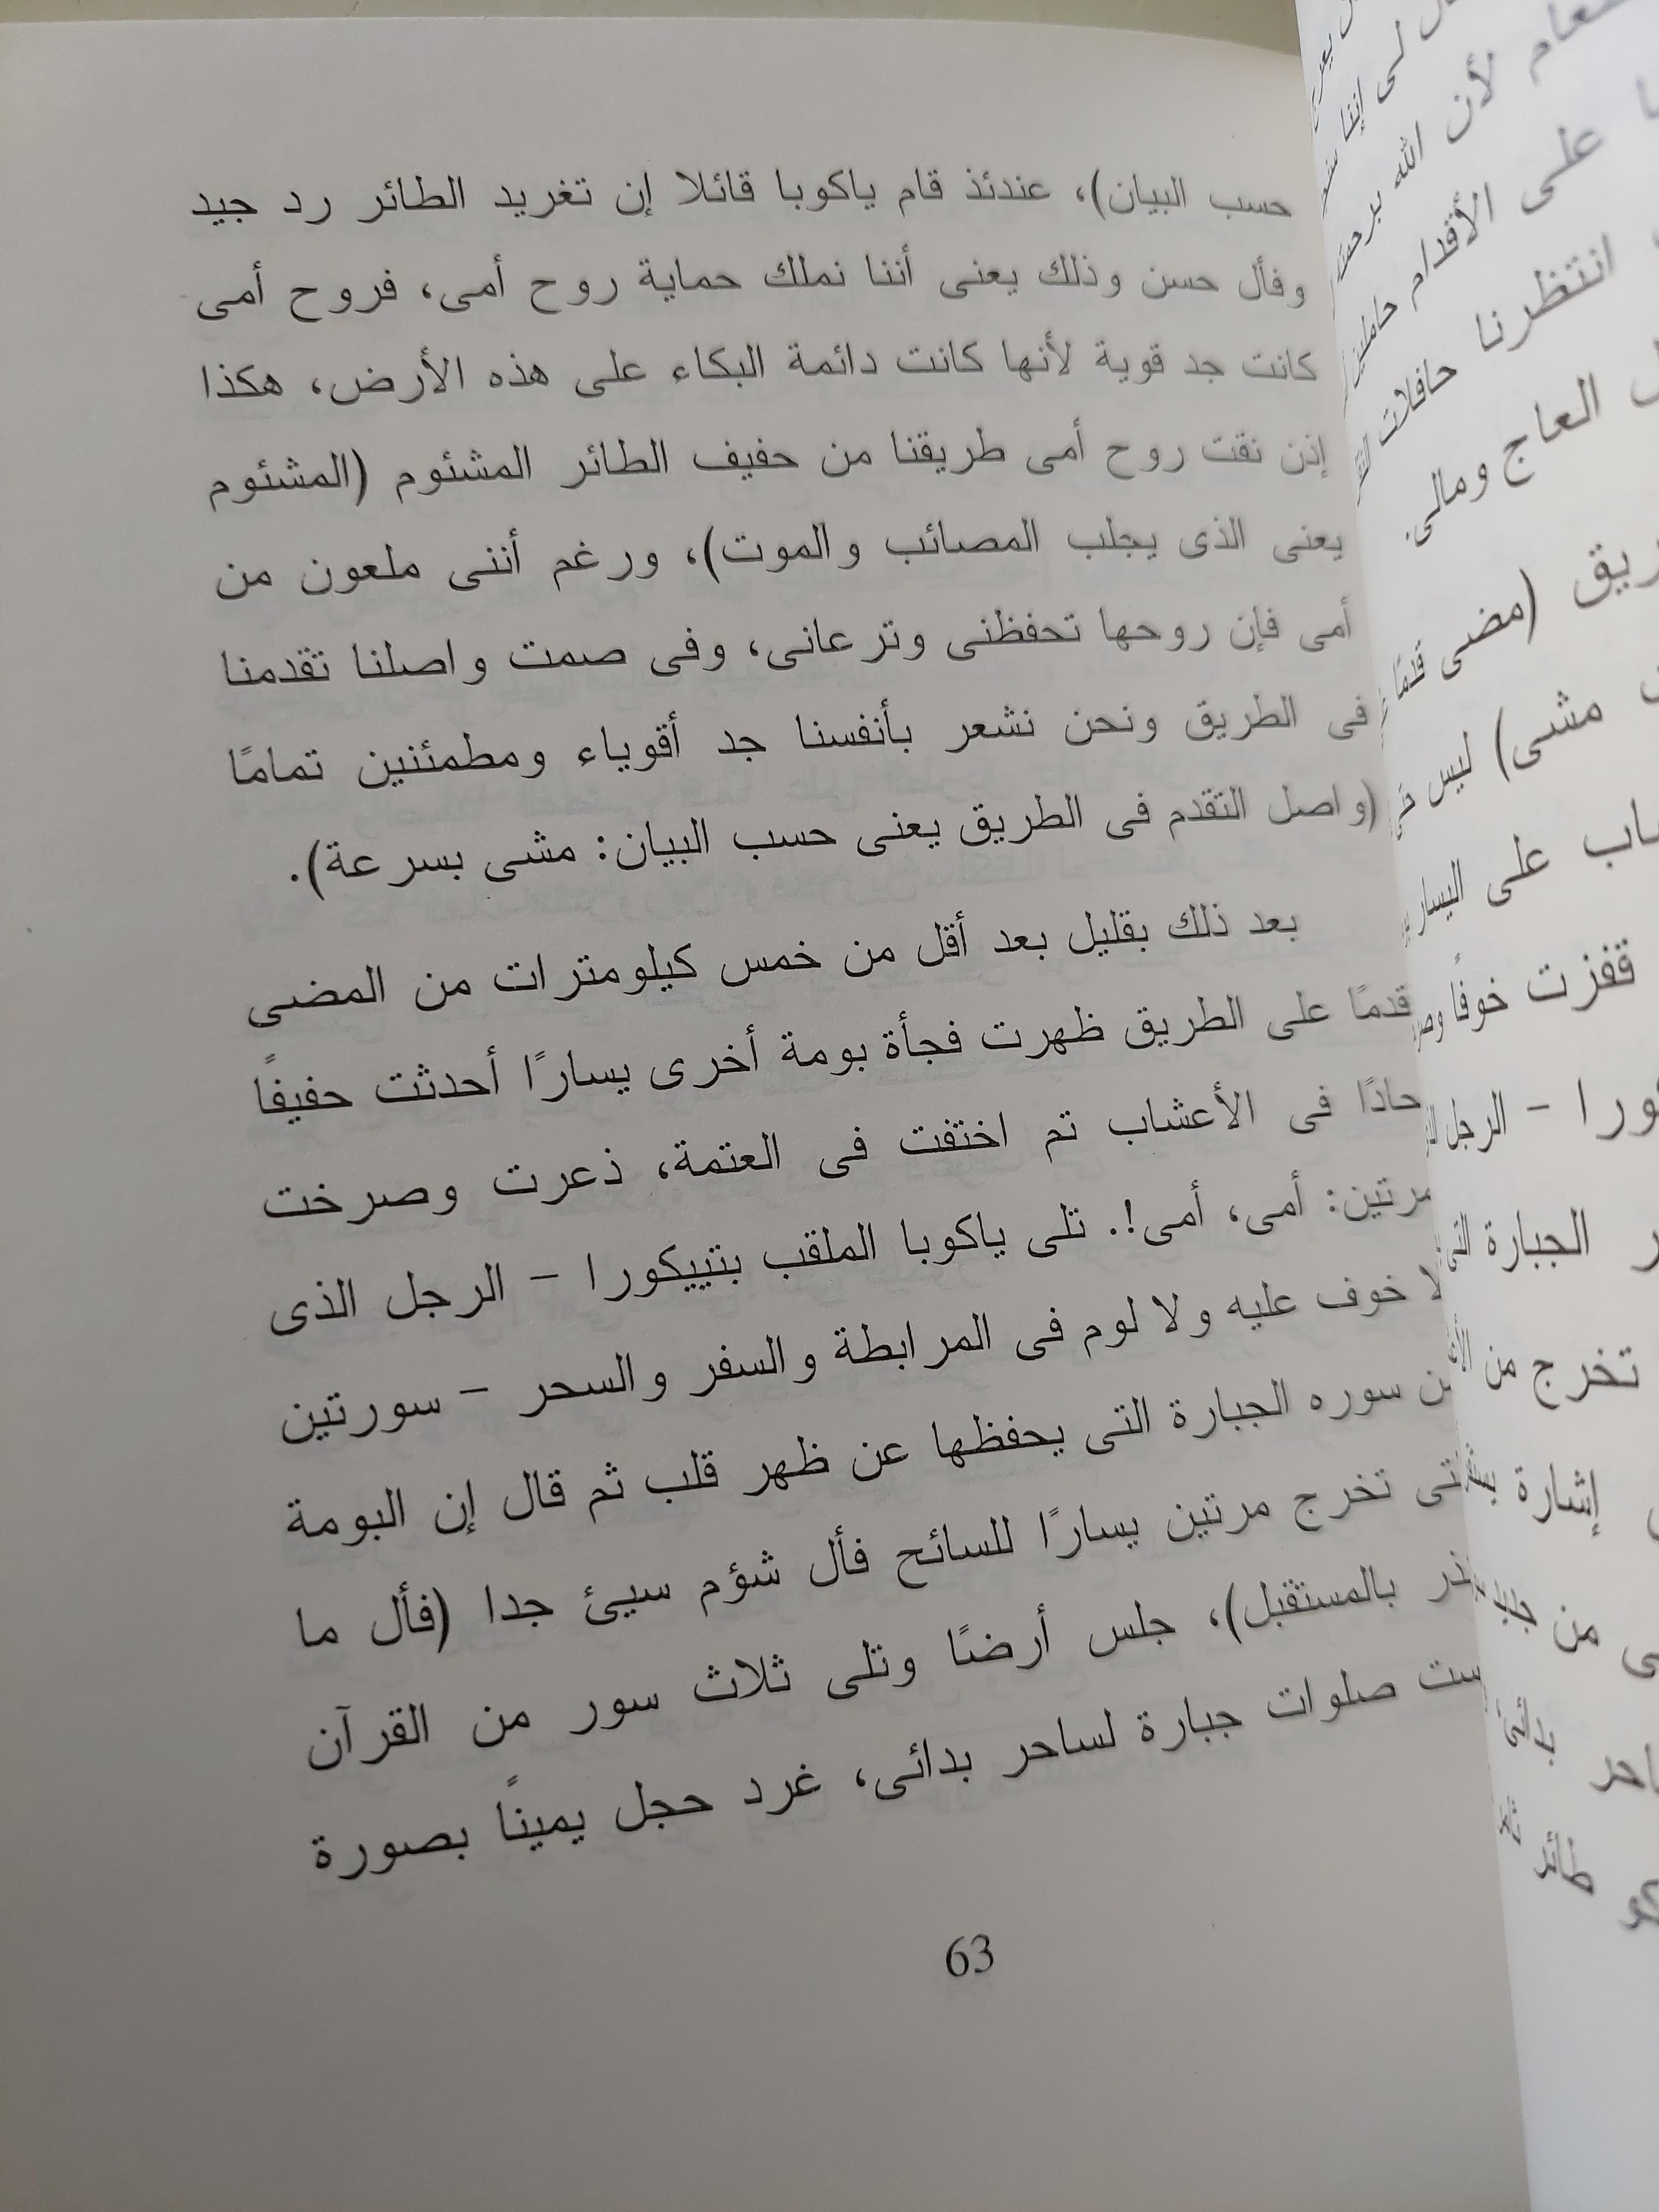 حسب البيان)، عندئذ قام ياكوبا قائلا إن تغريد الطائر رد جيد
وفأل حسن وذلك يعنى أننا نملك حماية روح أمى، فروح أمى
كانت جد قوية لأنها كانت دائمة البكاء على هذه الأرض، هكذا
إذن نقت روح أمى طريقنا من حفيف الطائر المشئوم (المشئوم
يعنى الذى يجلب المصائب والموت)، ورغم أننى ملعون من
أمى فإن روحها تحفظنى وترعانى، وفى صمت واصلنا تقدمنا
فى الطريق ونحن نشعر بأنفسنا جد أقوياء ومطمئنين تمامًا
(واصل التقدم فى الطريق يعنى حسب البيان: مشى بسرعة).
بعد ذلك بقليل بعد أقل من خمس كيلومترات من المضى
قدمًا على الطريق ظهرت فجأة بومة أخرى يسارًا أحدثت حفيفًا
حادًا فى الأعشاب تم اختفت فى العتمة، ذعرت وصرخت
مرتين: أمى، أمى!. تلى ياكوبا الملقب بتييكورا – الرجل الذى
لا خوف عليه ولا لوم فى المرابطة والسفر والسحر – سورتين
سوره الجبارة التى يحفظها عن ظهر قلب ثم قال إن البومة
تخرج مرتين يسارًا للسائح فأل شؤم سيئ جدا (فأل ما
بالمستقبل)، جلس أرضًا وتلى ثلاث سور من القرآن
صلوات جبارة لساحر بدائى، غرد حجل يمينًا بصورة
63
لأن الله
على الأقدام
انتظرنا حافلات
العاج ومالى.
(مضى قدمًا
مشى) ليس
على اليسار
قفزت خوفًا
– الرجل
الجبارة
تخرج من
إشارة
من
بدائى
طائر